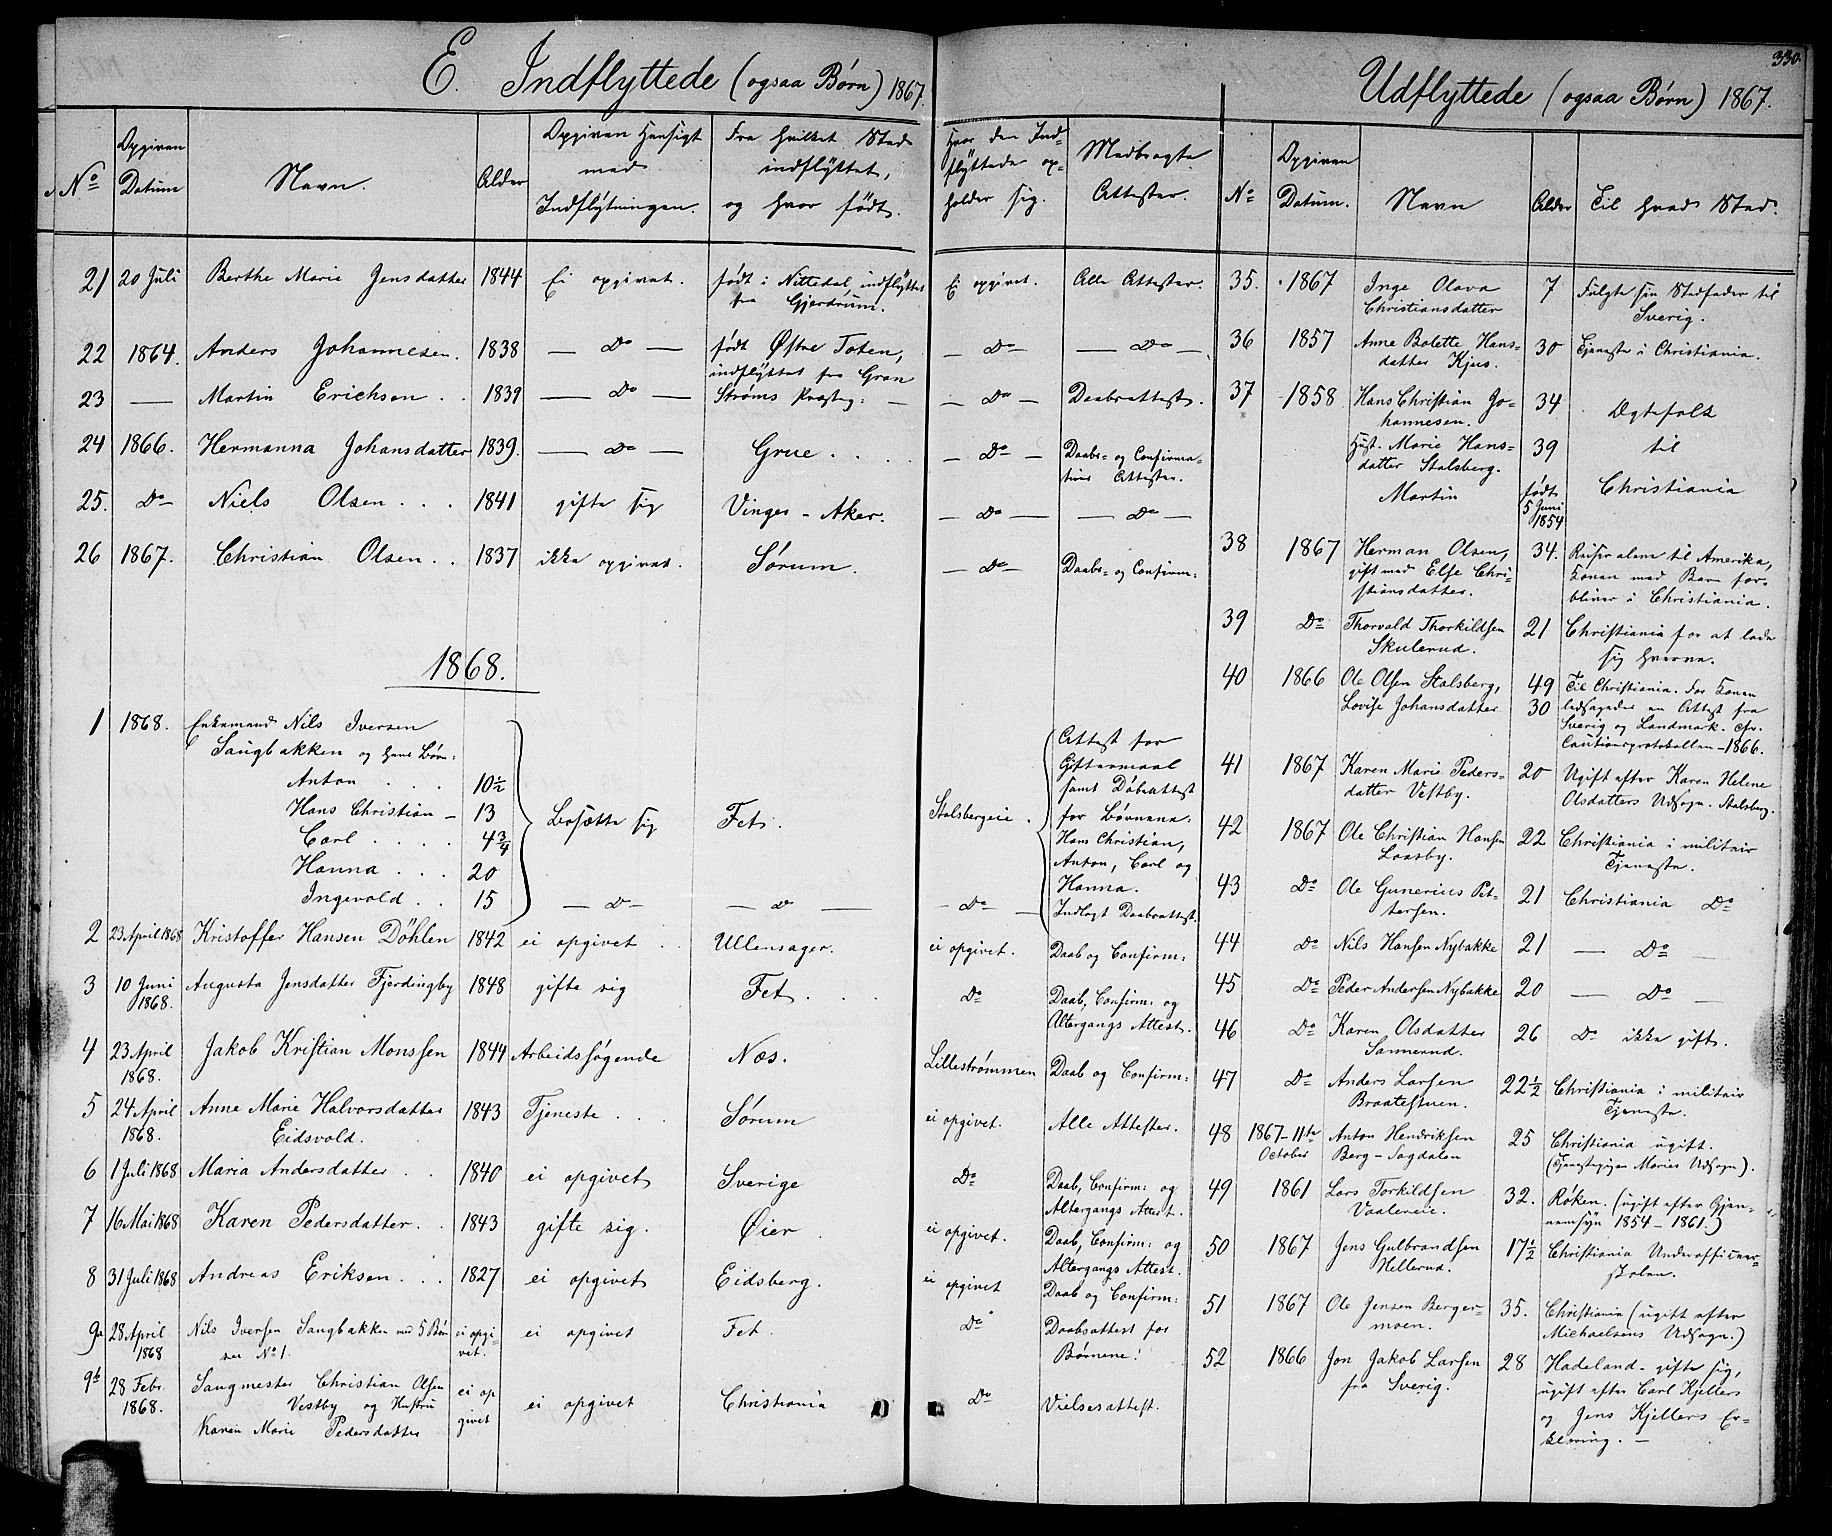 330.
E. Indflyttede (ogsaa Børn) 1867.
No
Opgiven Datum
Navn.
Alder
Opgiven Hensigt med Indflytningen.
Fra hvilket Sted indflyttet, og hvor født.
Hvor den Indflyttede opholder sig.
Medbragte Attester.
21 20 Juli Berthe Marie Jensdatter 1844 Ei opgivet. født i Nittedal, indflyttet fra Gjerdrum. Ei opgivet. Alle Attester.
22 1864. Anders Johannesen. 1838 — Do — født Østre Toten, indflyttet fra Gran — Do — — Do —
23 — Martin Erichsen . . 1839 — Do — Strøms Præsteg: — — Do — Daabsattest.
24 1866. Hermanna Johansdatter 1839. — Do — Grue . . . — Do — Daabs- og Confirmations Attester.
25. Do Niels Olsen . . . 1841 gifte sig Vinger - Aker. — Do — — Do —
26 1867. Christian Olsen . . 1837 ikke opgivet. Sørum. — Do — Daabs- og Confirm:
1868.
1 1868. Enkemand Nils Iversen
Saugbakken og hans Børn:
Anton . . . 10½
Hans Christian — 13
Carl . . . . 4¾
Hanna . . . 20
Ingevold . . 15
Bosætte sig Fet. Stalsbergeie.
Attest for
Giftermaal
samt Døbeattest
for Børnene.
Hans Christian,
Anton, Carl og
Hanna.
— Do — — Do — — Do — Indlagt Daabsattest.
2 23 April 1868 Kristoffer Hansen Døhlen 1842 ei opgivet . Ullensager. ei opgivet. Daab og Confirm:
3 10 Juni 1868. Augusta Jensdatter Fjerdingby 1848 gifte sig Fet . . . Do Daab, Confirm: og Altergangs Attest.
4 23 April 1868. Jakob Kristian Monssen 1844 Arbeidssøgende Næs. Lillestrømmen Daab og Confirm:
5 24 April 1868. Anne Marie Halvorsdatter Eidsvold. 1843 Tjeneste . . Sørum ei opgivet. Alle Attester.
6 1 Juli 1868 Maria Andersdatter . . 1840 ei opgivet Sverige Do Daab, Confirm: og Altergangs Attest.
7 16 Mai 1868 Karen Pedersdatter . . 1843 gifte sig. Øier ei opgivet. Daab, Confirm: og Altergangs Attest.
8 31 Juli 1868 Andreas Eriksen . . . 1827 ei opgivet Eidsberg. ei opgivet Daab og Confirm:
9a 28 April 1868 Nils Iversen Saugbakken med 5 Børn see No 1. ei opgivet. ei opgivet Fet. Do Daabsattest for Børnene!
9b 28 Febr. 1868. Saugmester Christian Olsen Vestby og Hustru Karen Marie Pedersdatter ei opgivet ei opgivet Christiania Do Vielsesattest.
Udflyttede (ogsaa Børn) 1867.
No
Opgiven Datum.
Navn
Alder
Til hvad Sted.
35. 1867 Inge Olava Christiansdatter 7 Fulgte sin Stedfader til Sverig.
36 1857 Anne Bolette Hansdatter Kjus. 30 Tjeneste i Christiania.
37 1858 Hans Christian Johannesen. 34
Hust. Marie Hansdatter Stalsberg. 39
Martin født 5 Juni 1854
Ægtefolk
til
Christiania
38 1867 Herman Olsen, gift med Else Christiansdatter. 34. Reiser alene til Amerika, Konen med Barn forbliver i Christiania.
39 Do Thorvald Thorkildsen Skulerud. 21 Christiania for at lade sig hverve.
40 1866 Ole Olsen Stalsberg, 49
Lovise Johansdatter 30
Til Christiania. For Konen ledsagedes en Attest fra Sverig og Landmark. Cfr. Cautionsprotokollen - 1866.
41 1867 Karen Marie Pedersdatter Vestby. 20 Ugift efter Karen Helene Olsdatters Udsagn. Stalsberg.
42 1867 Ole Christian Hansen Laasby. 22 Christiania i militair Tjeneste.
43 Do Ole Gunerius Pettersen. 21 Christiania Do
44 Do Nils Hansen Nybakke 21 — Do —
45 Do Peder Andersen Nybakke 20 — Do —
46 Do Karen Olsdatter Sannerud. 26 Do ikke gift.
47 Do Anders Larsen Braatestuen. 22½ Christiania i militair Tjeneste.
48 1867 - 11te October Anton Hendriksen Berg - Sagdalen 25 Christiania ugift. (Tjenestepigen Maries Udsagn).
49 1861 Lars Torkildsen Vaalereie. 32. Røken. (ugift efter Gjennemsyn 1854 - 1861.)
50 1867 Jens Gulbrandsen Hellerud. 17½ Christiania Underofficeerskolen.
51 1867 Ole Jensen Bergermoen. 35. Christiania (ugift efter Michaelsens Udsagn.)
52 1866 Jon Jakob Larsen fra Sverig. 28 Hadeland - gifte sig, ugift efter Carl Kjellers og Jens Kjellers Erklæring. —